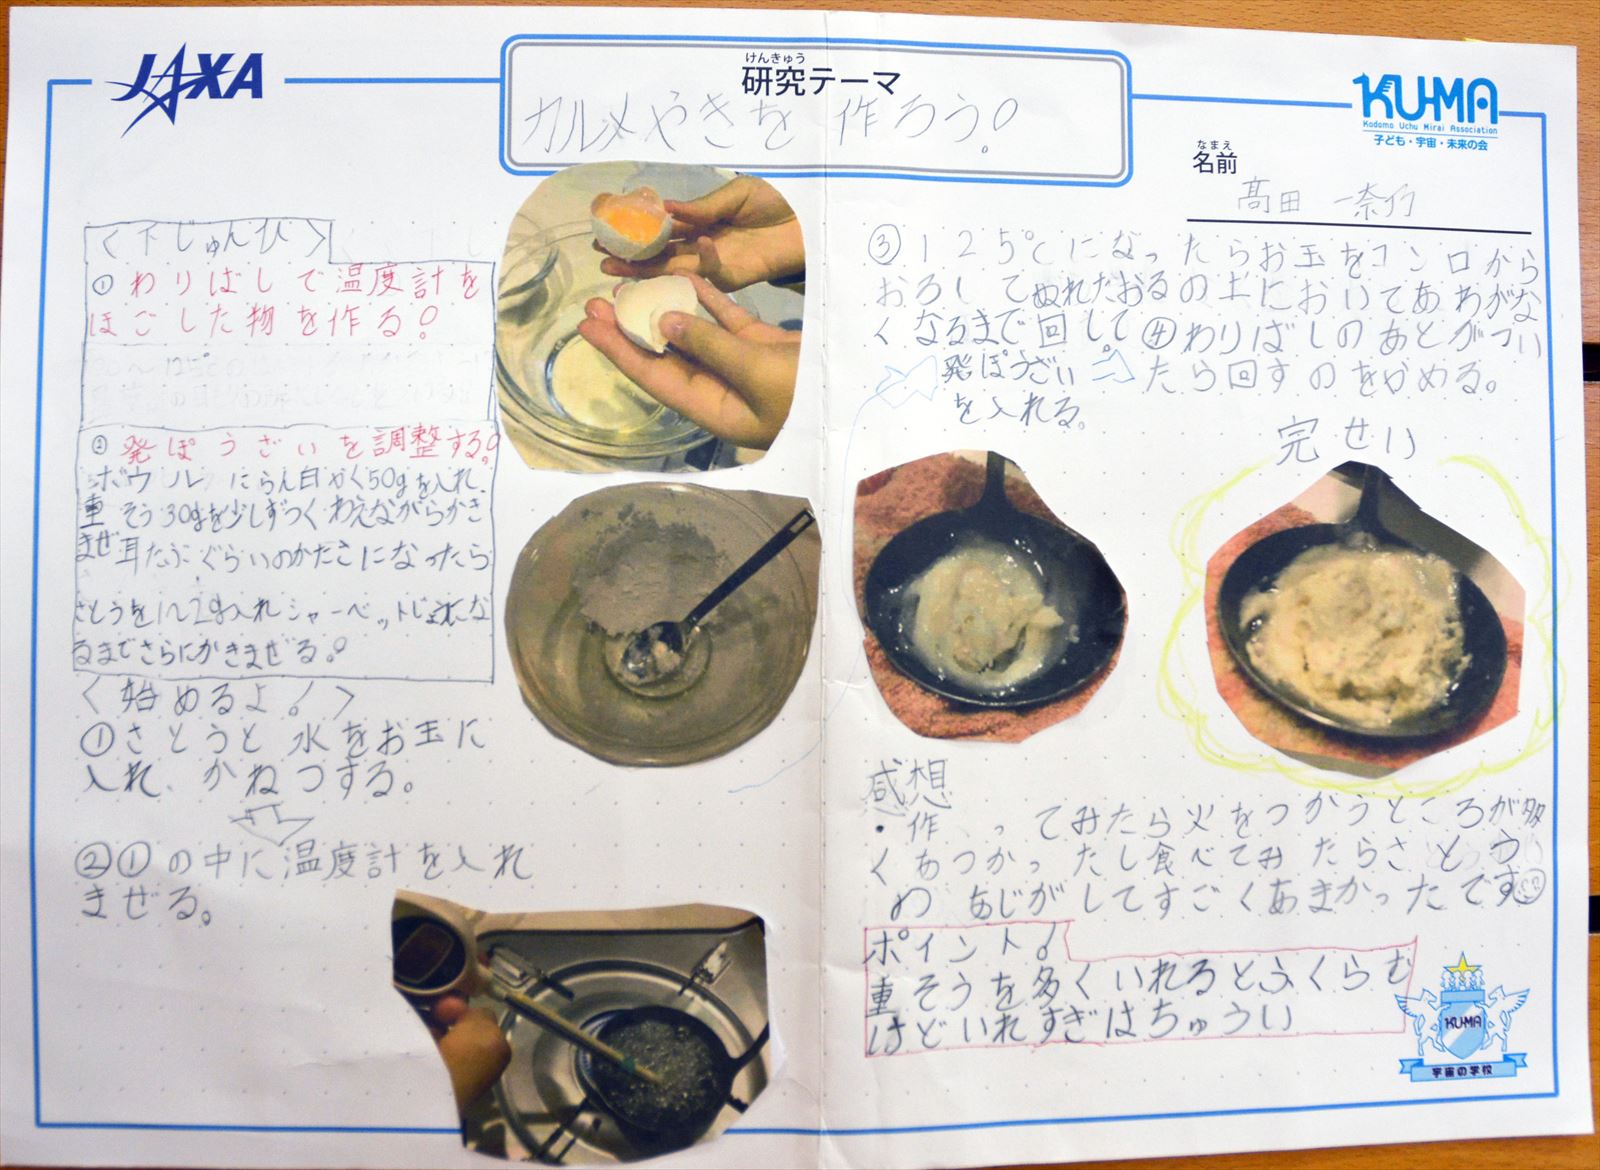 JAXA
けんきゅう
研究テーマ
カルメやきを作ろう!
KU-MA
Kodomo Uchu Mirai Association
子ども・宇宙・未来の会
なまえ
名前
髙田
<下じゅんび>
① わりばしで温度計を
ほごした物を作る!
② 発ぽうざいを調整する!
ボウルにらん白やく50gを入れ、
重そう30gを少しずつくわえながらかき
まぜ耳たぶぐらいのかたさになったら
さとうを1~2g入れシャーベットじょうにな
るまでさらにかきまぜる。
<始めるよ!>
①さとうと水をお玉に
入れ、かねつする。
②①の中に温度計を入れ
まぜる。
③125℃になったらお玉をコンロから
おろしてぬれたおるの上においてあわがな
くなるまで回して
発ぽうざい
を入れる。
④わりばしのあとがつい
たら回すのをやめる。
完せい
感想
・作ってみたら火をつかうところが多
くあつかったし食べてみたらさとう
のあじがしてすごくあまかったです
ポイント!
重そうを多くいれるとふくらむ
けどいれすぎはちゅうい
KU-MA
宇宙の学校